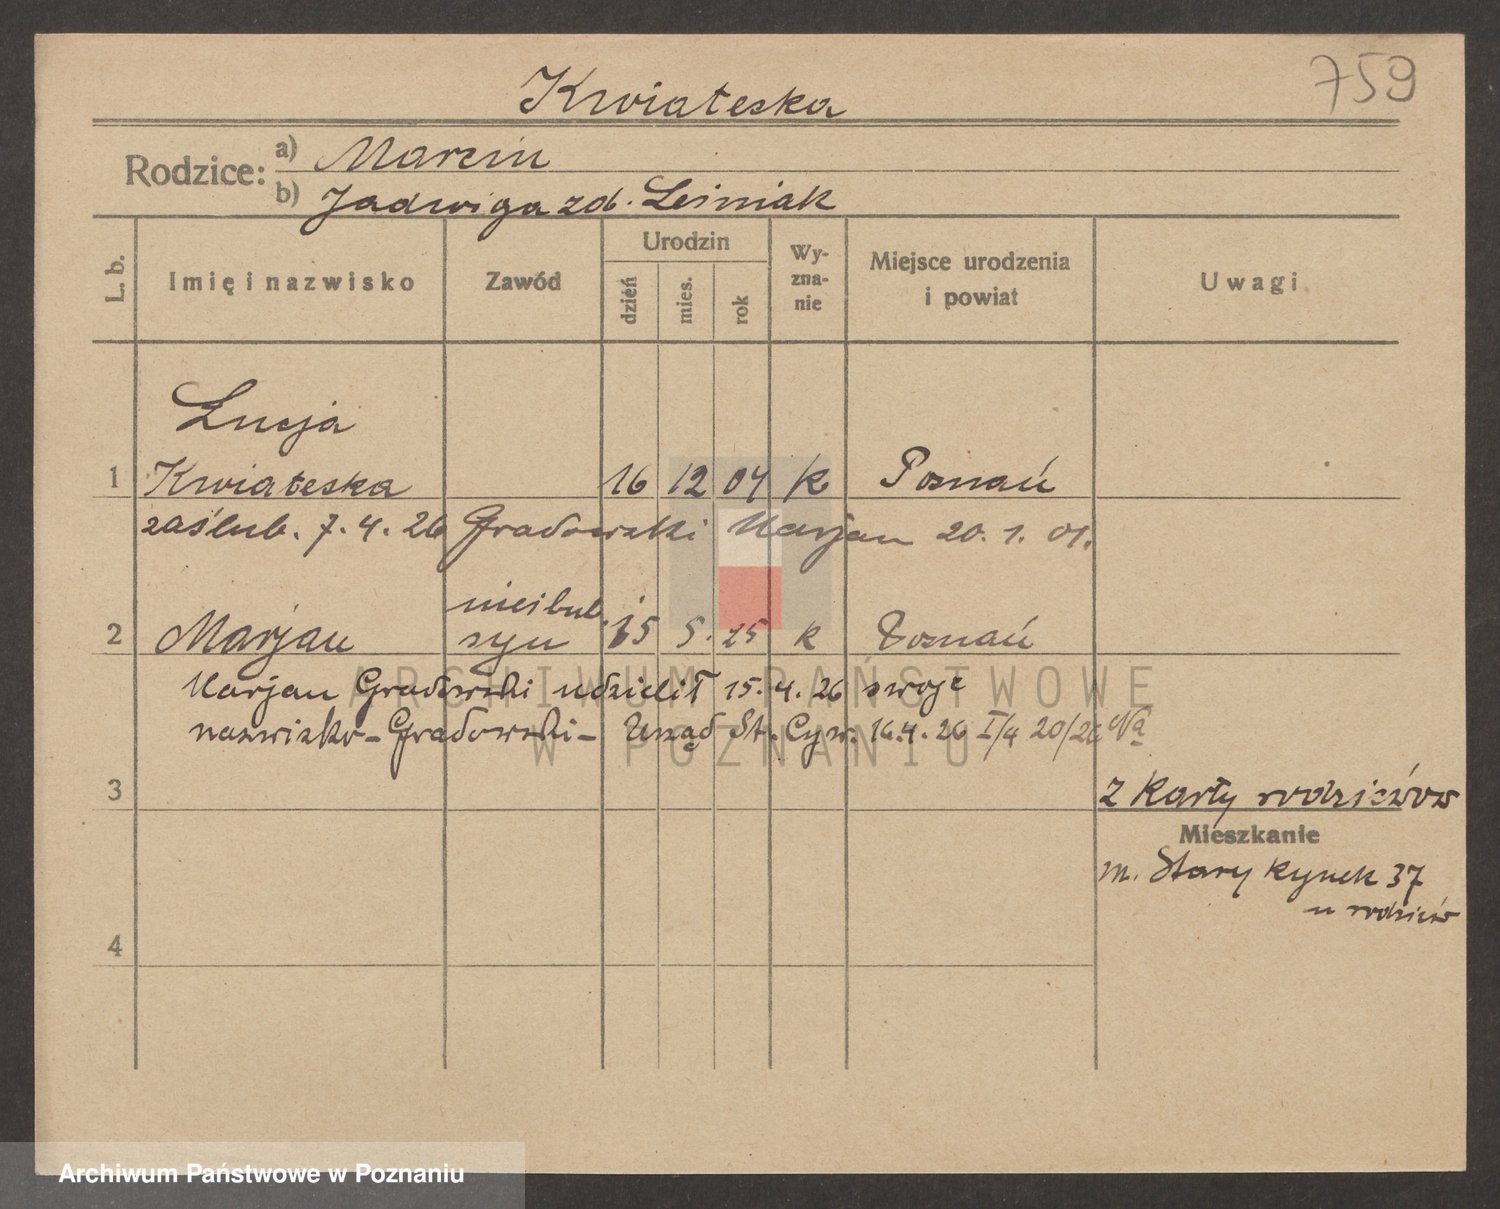 759
Kwiateska
Rodzice: a) Marcin
b) Jadwiga zd. Leśniak
L. b. Imię i nazwisko Zawód Urodzin dzień mies. rok Wy-zna-nie Miejsce urodzenia i powiat Uwagi
Łucja
1 Kwiateska 16 12 04 k Poznań
zaślub. 7.4.26 Gradowski Marjan 20.1.01.
nieślub.
2 Marjan syn 15 5. 25 k Poznań
Marjan Gradowski udzielił 15.4.26 swoje
nazwisko - Gradowski - Urząd St. Cyw. 16.4.26 I/4 20/26
3 z karty rodziców
Mieszkanie
m. Stary Rynek 37
u rodziców
4
ARCHIWUM PAŃSTWOWE
W POZNANIU
Archiwum Państwowe w Poznaniu